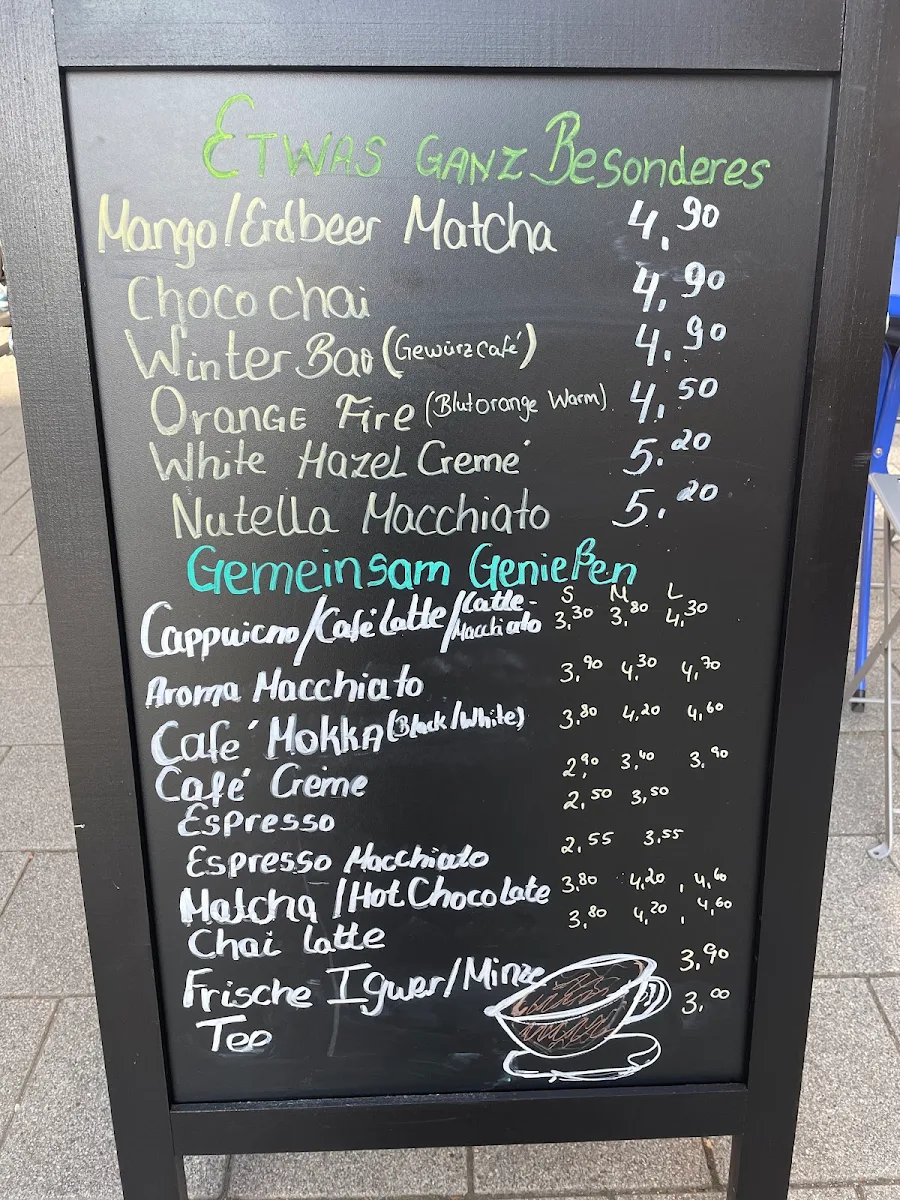 Etwas ganz Besonderes
Mango/Erdbeer Matcha 4,90
Choco chai 4,90
Winter Bao (Gewürzcafé) 4,90
Orange Fire (Blutorange Warm) 4,50
White Hazel Cremé 5,20
Nutella Macchiato 5,20
Gemeinsam Genießen
S M L
Cappuicno/Café Latte/Latte-Macchiato 3,30 3,80 4,30
Aroma Macchiato 3,90 4,30 4,70
Café Mokka (Black/White) 3,80 4,20 4,60
Café Créme 2,90 3,40 3,90
Espresso 2,50 3,50
Espresso Macchiato 2,55 3,55
Matcha/Hot Chocolate 3,80 4,20, 4,60
Chai latte 3,80 4,20, 4,60
Frische Igwer/Minze 3,90
Tee 3,00